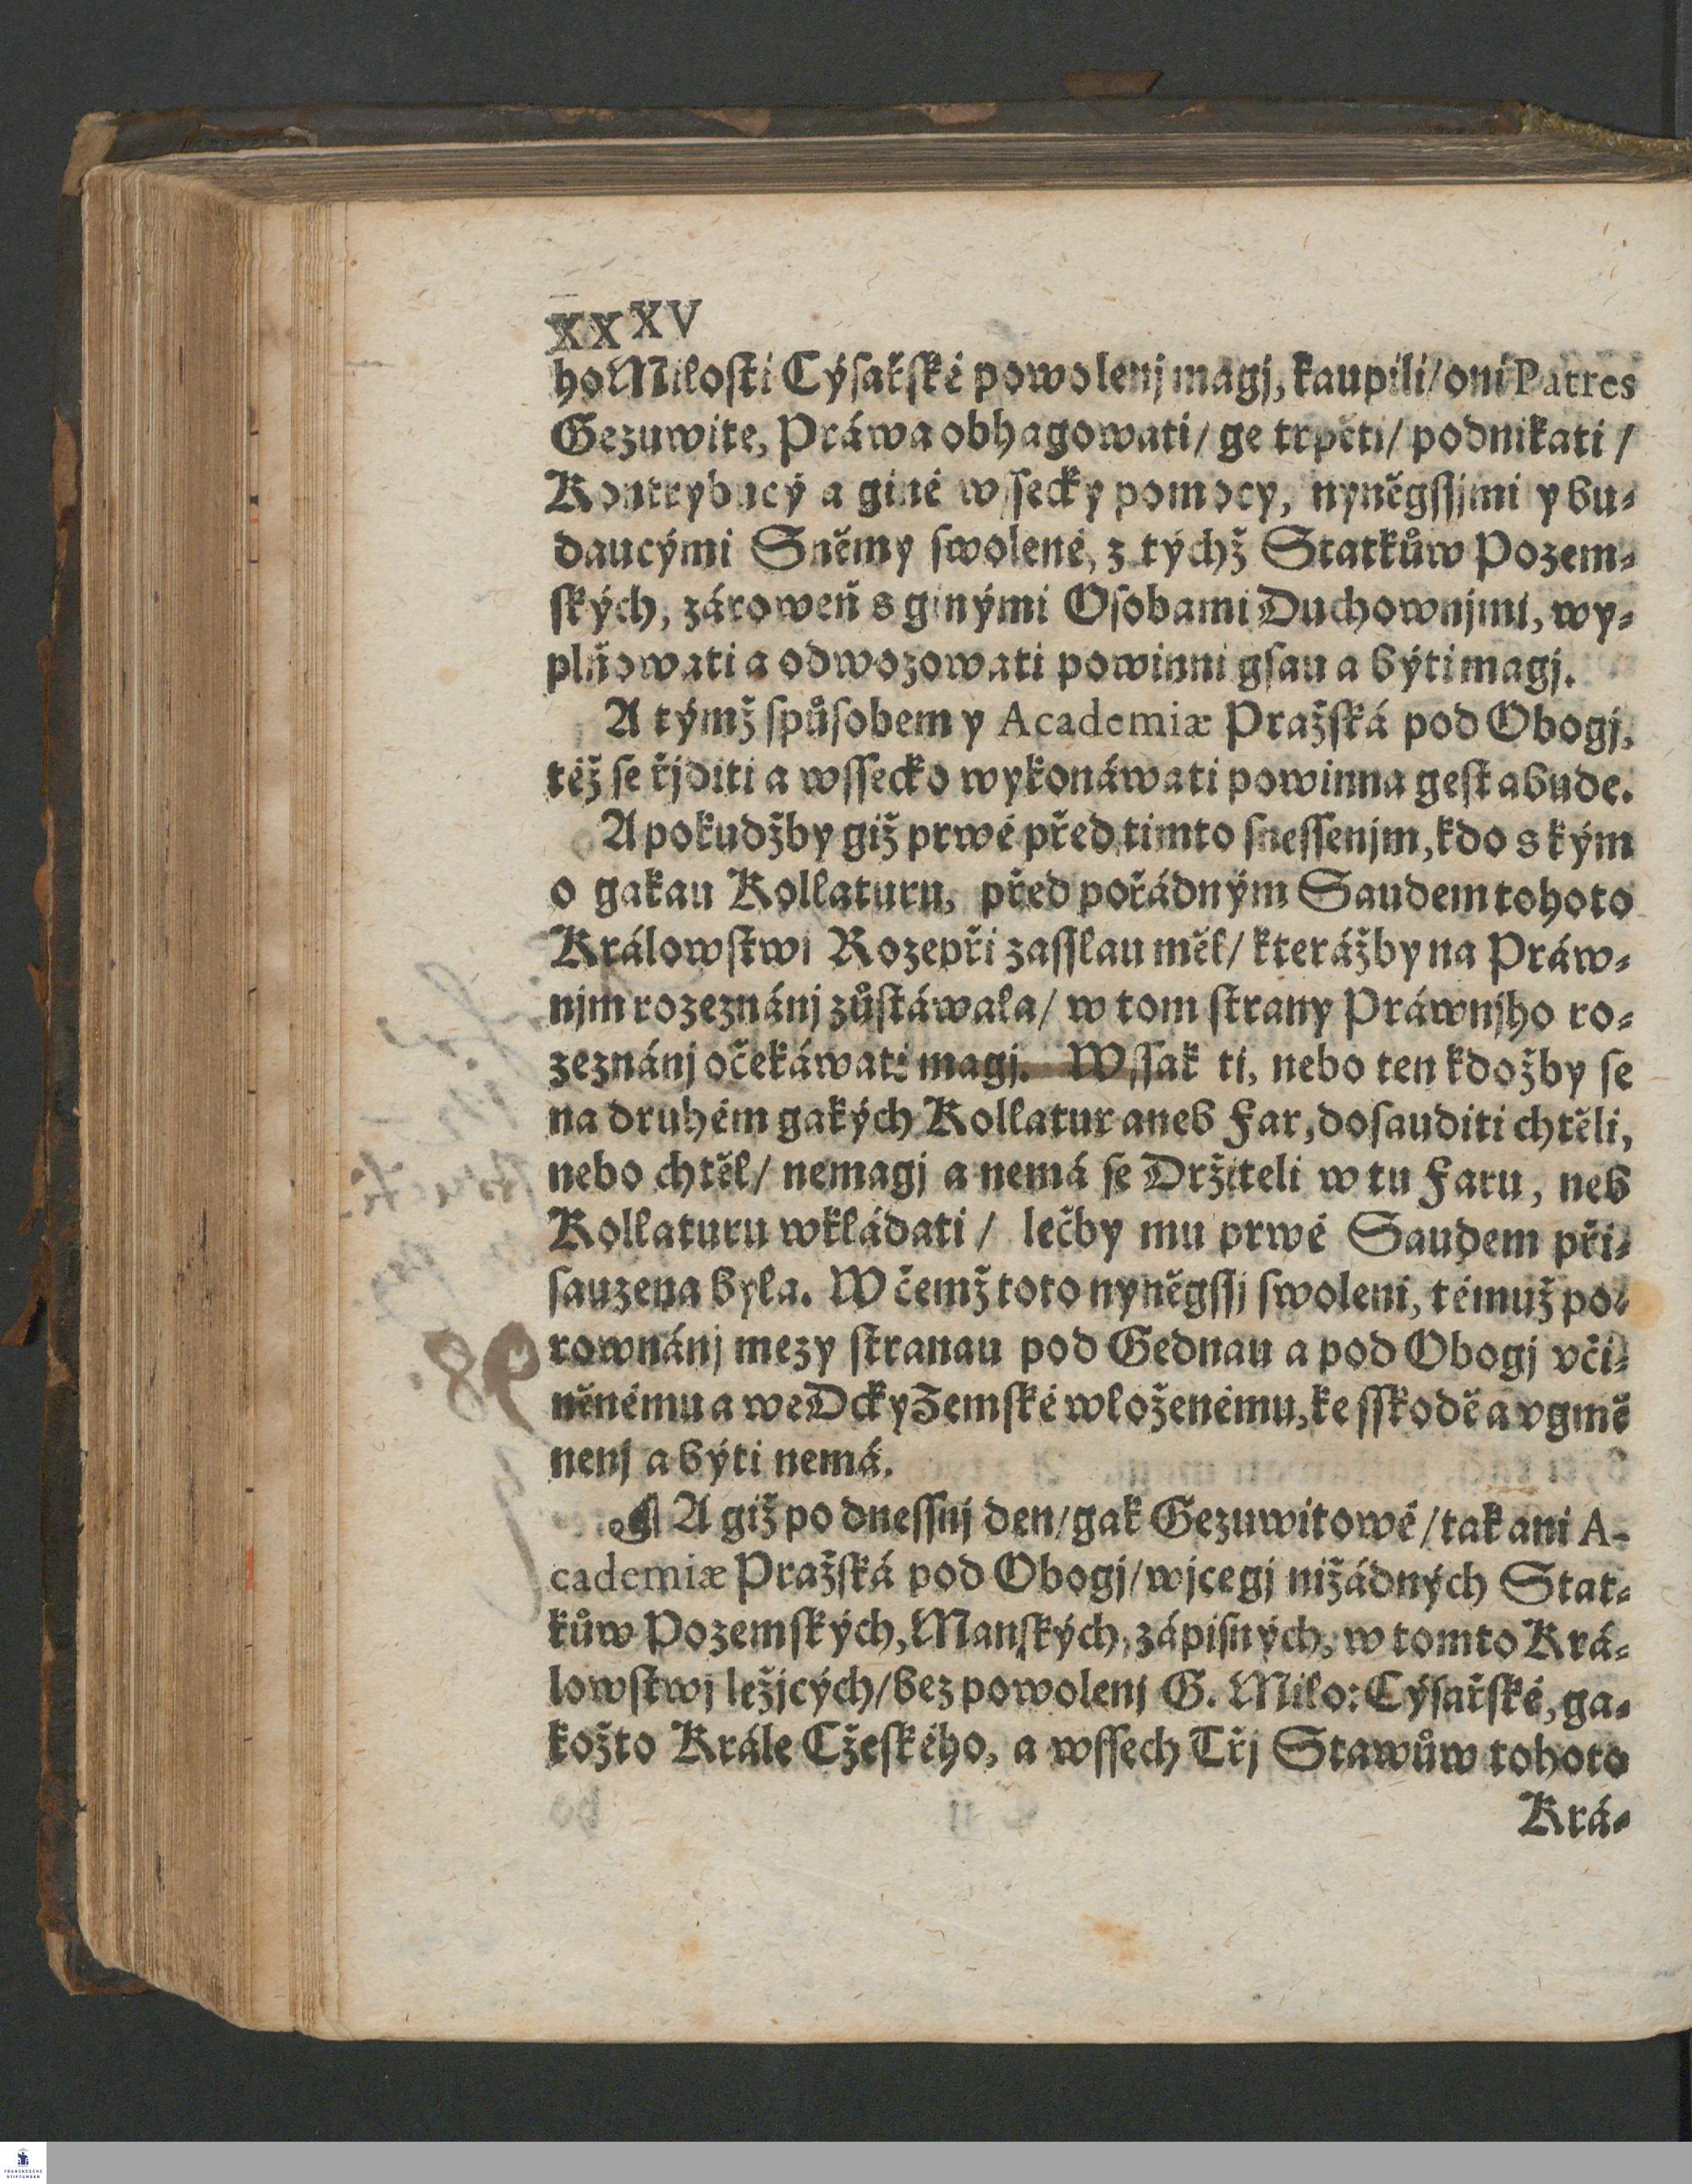 XXXV
ho Milosti Cýsařské powolenj magj, kaupili/ oni Patres
Gezuwite, Práwa obhagowati/ ge trpěti/ podnikati/
Kontrybucý a giné wssecky pomocy, nyněgssjmi y bu-
daucými Sněmy swolené, z týchž Statkůw Pozem-
ských, zároweň s ginými Osobami Duchownjmi, wy-
plňowati a odwozowati powinni gsau a býti magj.
A týmž spůsobem y Academiæ Pražská pod Obogj,
též se řjditi a wssecko wykonáwati powinna gest a bude.
A pokudžby giž prwé před timto snessenjm, kdo s kým
o gakau Kollaturu, před pořádným Saudem tohoto
Králowstwi Rozepři zasslau měl/ kterážby na Práw-
njm rozeznánj zůstáwala/ w tom strany Práwnjho ro-
zeznánj očekáwati magj. Wssak ti, nebo ten kdožby se
na druhém gakých Kollatur aneb Far, dosauditi chtěli,
nebo chtěl/ nemagj a nemá se Držiteli w tu Faru, neb
Kollaturu wkládati/ lečby mu prwé Saudem při-
sauzena byla. W čemž toto nyněgssj swoleni, témuž po-
rownánj mezy stranau pod Gednau a pod Obogj vči-
něnému a we Dcky Zemské wloženému, ke sskodě a vgmě
nenj a býti nemá.
¶ A giž po dnessnj den/ gak Gezuwitowé/ tak ani A-
cademiæ Pražská pod Obogj/ wjcegj nižádných Stat-
kůw Pozemských, Manských, zápisných, w tomto Krá-
lowstwj ležjcých/ bez powolenj G. Milo: Cýsařské, ga-
kožto Krále Cžeského, a wssech Třj Stawůw tohoto
Krá-